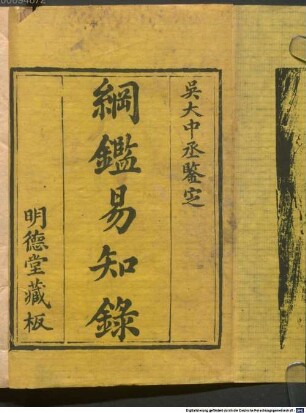 吳大中丞鑒定
綱鑑易知錄
明德堂藏板